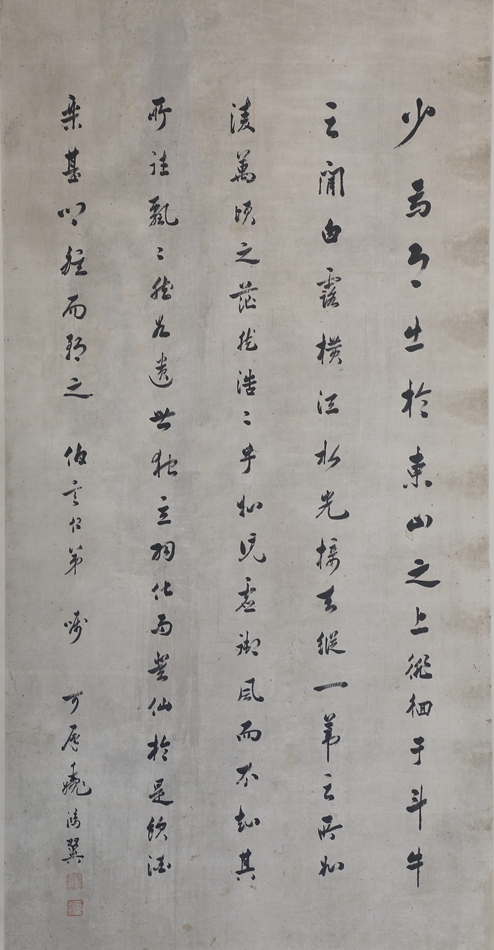 少焉月出於東山之上徘徊于斗牛
之間白露橫江水光接天縱一葦之所如
凌萬頃之茫然浩〻乎如馮虛御風而不知其
所飄〻然若遺世獨立羽化而登仙於是飲酒
樂甚叩舷而歌之 伯言仁弟 囑 可翼